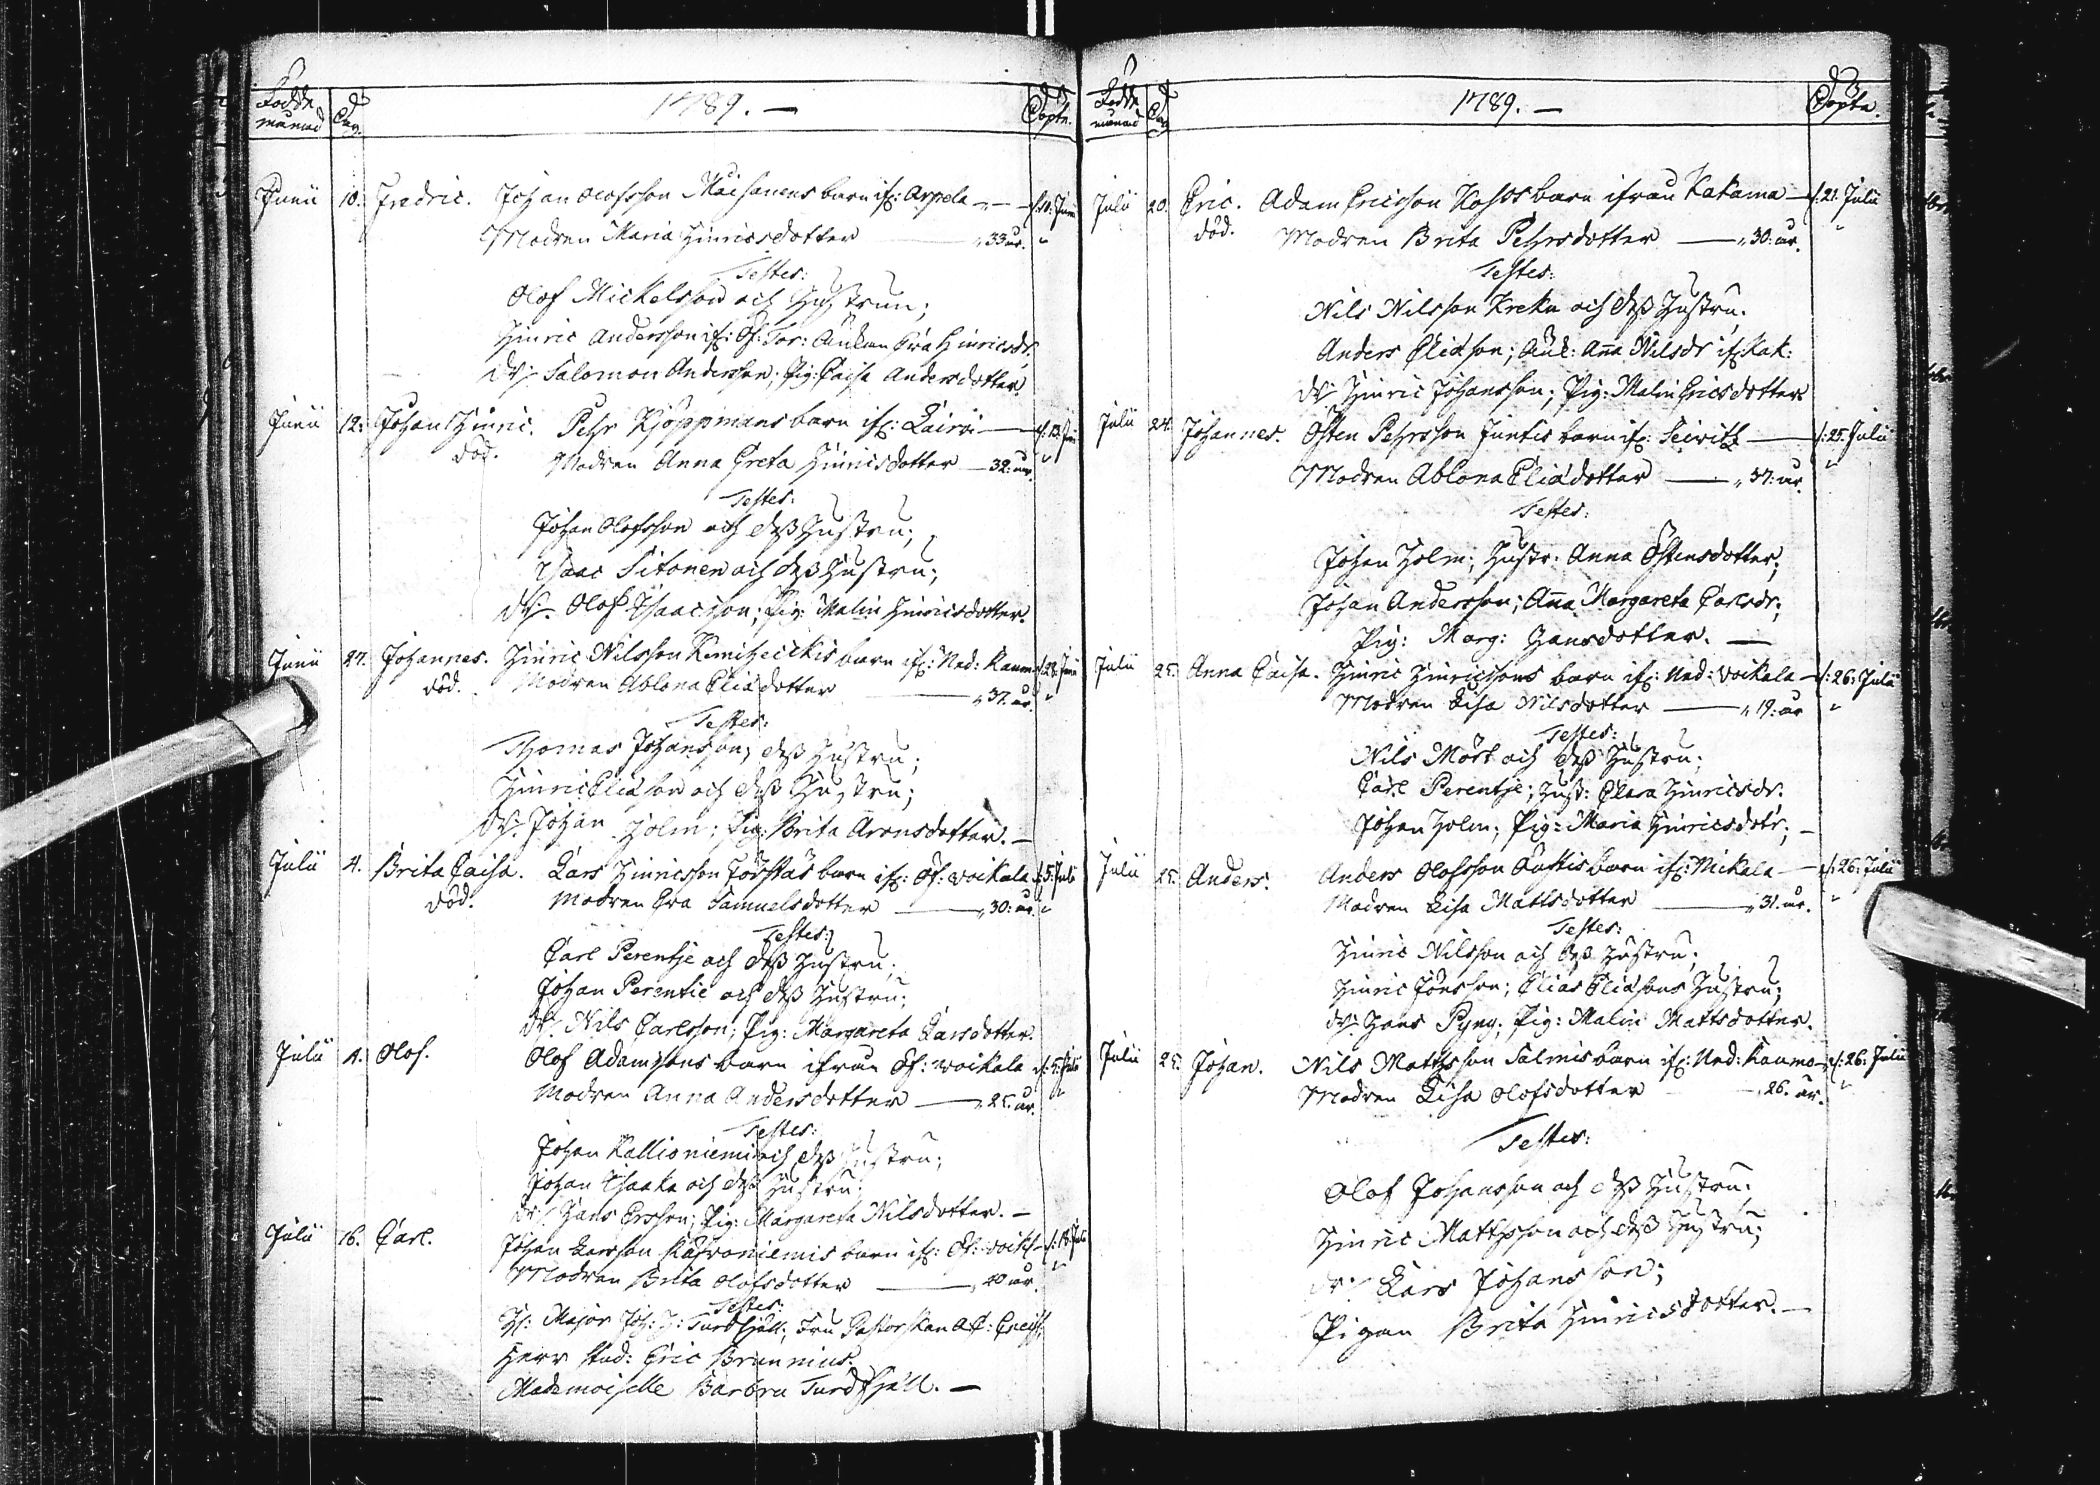 Födde månad Dag 1789. — Döpte.
Junii 10. Fredric. Johan Olofsson barn ifr: Arpela — d: 10. Junii
Modren Maria Hinricsdotter — „ 33 år. "
Testes:
Olof Mickelsson och Hustrun;
Hinric Andersson ifr: Öf: Tor: Änkan Eva Hinricsdr.
Dr: Salomon Andersson; Pig: Caisa Andersdotter
Junii 12: Johan Hinric. Pehr Kjöppmans barn ifr: — d: 13. Junii
död. Modren Anna Greta Hinricsdotter — 32: år. "
Testes:
Johan Olofsson och dess Hustru;
Isaac Sitonen och dess Hustru;
Dr: Olof Isaacsson; Pig: Malin Hinricsdotter.
Junii 27. Johannes. Hinric Nilsson barn ifr: Ned: Kaumo d: 28. Junii
död. Modren Ablona Eliædotter — „ 37. år. "
Testes:
Thomas Johansson; dess Hustru;
Hinric Eliæsson och dess Hustru;
Dr: Johan Holm; Pig: Brita Aronsdotter. —
Julii 4. Brita Caisa. Lars Hinricsson barn ifr: Öf: Voikala d: 5. Julii
död. Modren Eva Samuelsdotter — „ 30: år. "
Testes:
Carl Perentje och dess Hustru;
Johan Perentie och dess Hustru;
Dr: Nils Carlsson; Pig: Margareta Larsdotter.
Julii 4. Olof. Olof Adamssons barn ifrån Öf: Voikala d: 5. Julii
Modren Anna Andersdotter — „ 25. år. "
Testes:
Johan Kallioniemi och dess Hustru;
Johan Isaaka och dess Hustru;
Dr: Hans Ersson; Pig: Margareta Nilsdotter. —
Julii 16. Carl. Johan Larsson barn ifr: Öf: Voik: — d: 18. Julii
Modren Brita Olofsdotter — „ 40 år. "
Testes:
Hr: Major Joh: H: Turdfjäll; Fru Pastorskan
Herr Stud: Eric Brunnius.
Mademoiselle Barbra Turdfjäll. —
Födde månad Dag 1789. — Döpte.
Julii 20. Eric. Adam Ericsson barn ifrån Kakama — d: 21. Julii
död. Modren Brita Pehrsdotter — „ 30: år. "
Testes:
Nils Nilsson Kreku och dess Hustru.
Anders Eliæson; Änk: Anna Nilsdr ifr: Kak:
Dr: Hinric Johansson; Pig: Malin Ericsdotter
Julii 24. Johannes. Östen Pehrsson Juntis barn ifr: — d: 25. Julii
Modren Ablona Eliædotter — „ 37: år. "
Testes:
Johan Holm; Hustr: Anna Östensdotter;
Johan Andersson; Anna Margareta Carlsdr;
Pig: Marg: Hansdotter. —
Julii 25. Anna Caisa. Hinric Hinricssons barn ifr: Ned: Voikala — d: 26: Julii
Modren Lisa Nilsdotter — „ 19: år "
Testes:
Nils Mört och dess Hustru;
Carl Perentje; Hust: Clara Hinricsdr.
Johan Holm; Pig: Maria Hinricsdotr; —
Julii 25. Anders. Anders Olofsson barn ifr: Mickala — d: 26: Julii
Modren Lisa Mattsdotter — „ 31. år. "
Testes:
Hinric Nilsson och dess Hustru;
Hinric Jönsson; Elias Eliæsons Hustru;
Dr: Hans Pyny; Pig: Malin Mattsdotter.
Julii 25. Johan. Nils Mathsson Salmis barn ifr: Ned: Kaumo — d: 26: Julii
Modren Lisa Olofsdotter — „ 26. år. "
Testes:
Olof Johansson och dess Hustru;
Hinric Mathsson och dess Hustru;
Dr: Lars Johansson;
Pigan Brita Hinricsdotter. —